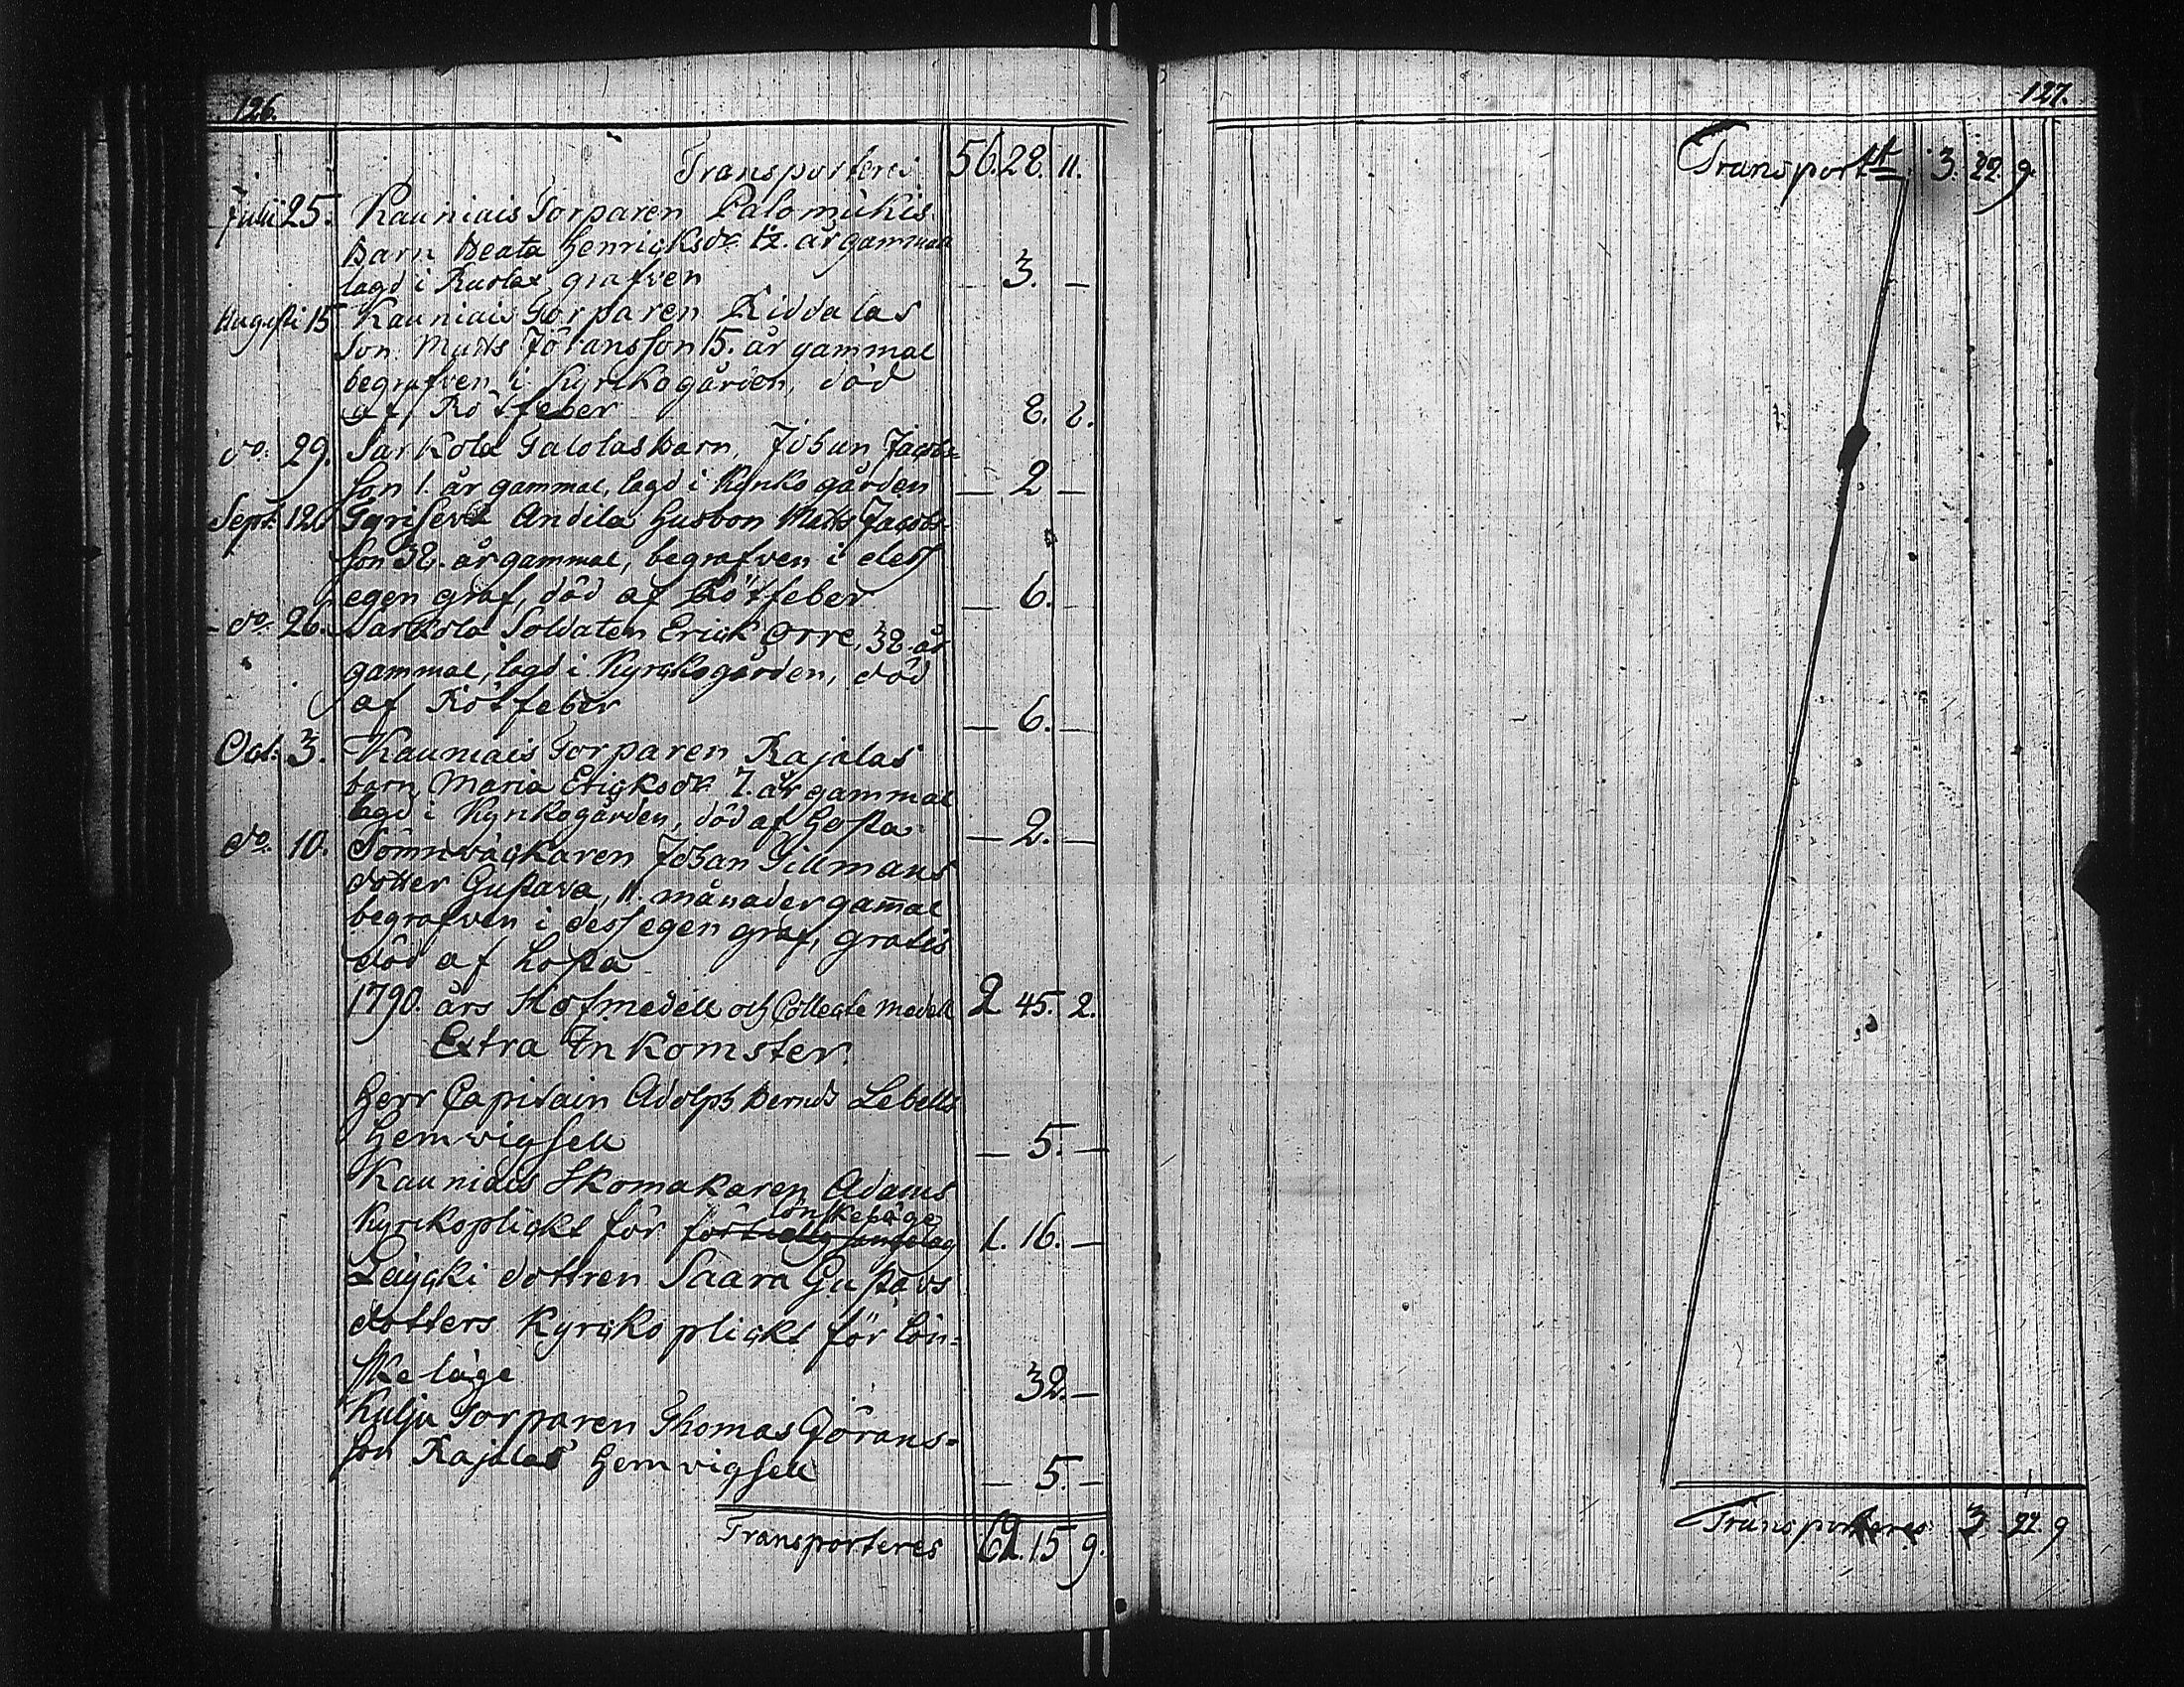 126.
Transporteres 56. 28. 11.
Julii 25. Kauniais Torparen Palomäkis
Barn Beata Henricksdr 12. år gammal
lagd i Rusta grafven — 3. —
Augusti 15 Kauniais Torparen Riddalas
Son Matts Jöransson 15. år gammal
begrafven i Kyrckogården, död
af Rötfeber 8. 8.
do. 29. Sarkola Talolas barn, Johan Jacobs=
son 1. år gammal, lagd i Kyrko gården — 2 —
Sept. 12 Andila Husbon Matts Jacobs
son 38. år gammal, begrafven i dess
egen graf, död af Rötfeber — 6. —
do. 26. Sarkola Soldaten Erick Orre, 32. år
gammal, lagd i Kyrckogården, död
af Rötfeber — 6. —
Oct. 3. Kauniais Torparen Rajalas
barn Maria Ericksdr 7. år gammal
lagd i Kyrkogården, död af Hosta — 2. —
do. 10. Sömnväckaren Johan Tillmans
dotter Gustava, 11. månader gamal
begrafven i dess egen graf, gratis
död af hosta
1790. års Håfmedell och Collecte medell 2 45. 2.
Extra Inkomster
Herr Capitain Adolph Bernds Lebells
Hemvigsell — 5. —
Kauniais Skomakaren Adams
lönskeläge
Kyrckoplickt för 1. 16. —
Läycki dottren Saara Gustavs
dotters Kyrcko plickt för lön=
skeläge 32. —
Kulju Torparen Thomas Görans=
son Rajalas Hemvigsell — 5. —
Transporteres 62. 15 9.
127.
Transportt 3. 22 9.
Transporteres 3 22 9